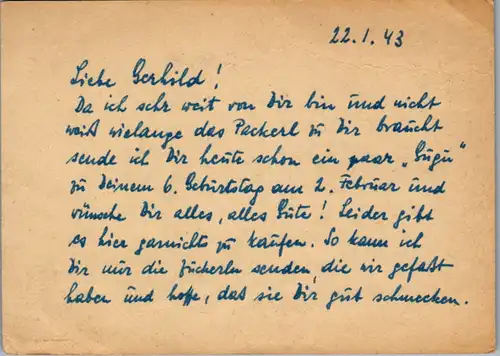 22.1.43
Liebe Gerhild!
Da ich sehr weit von Dir bin und nicht
weiß wielange das Packerl zu Dir braucht
sende ich Dir heute schon ein paar „Gugu"
zu Deinem 6. Geburtstag am 2. Februar und
wünsche Dir alles, alles Gute! Leider gibt
es hier garnichts zu kaufen. So kann ich
Dir nur die Zuckerln senden, die wir gefaßt
haben und hoffe, daß sie Dir gut schmecken.